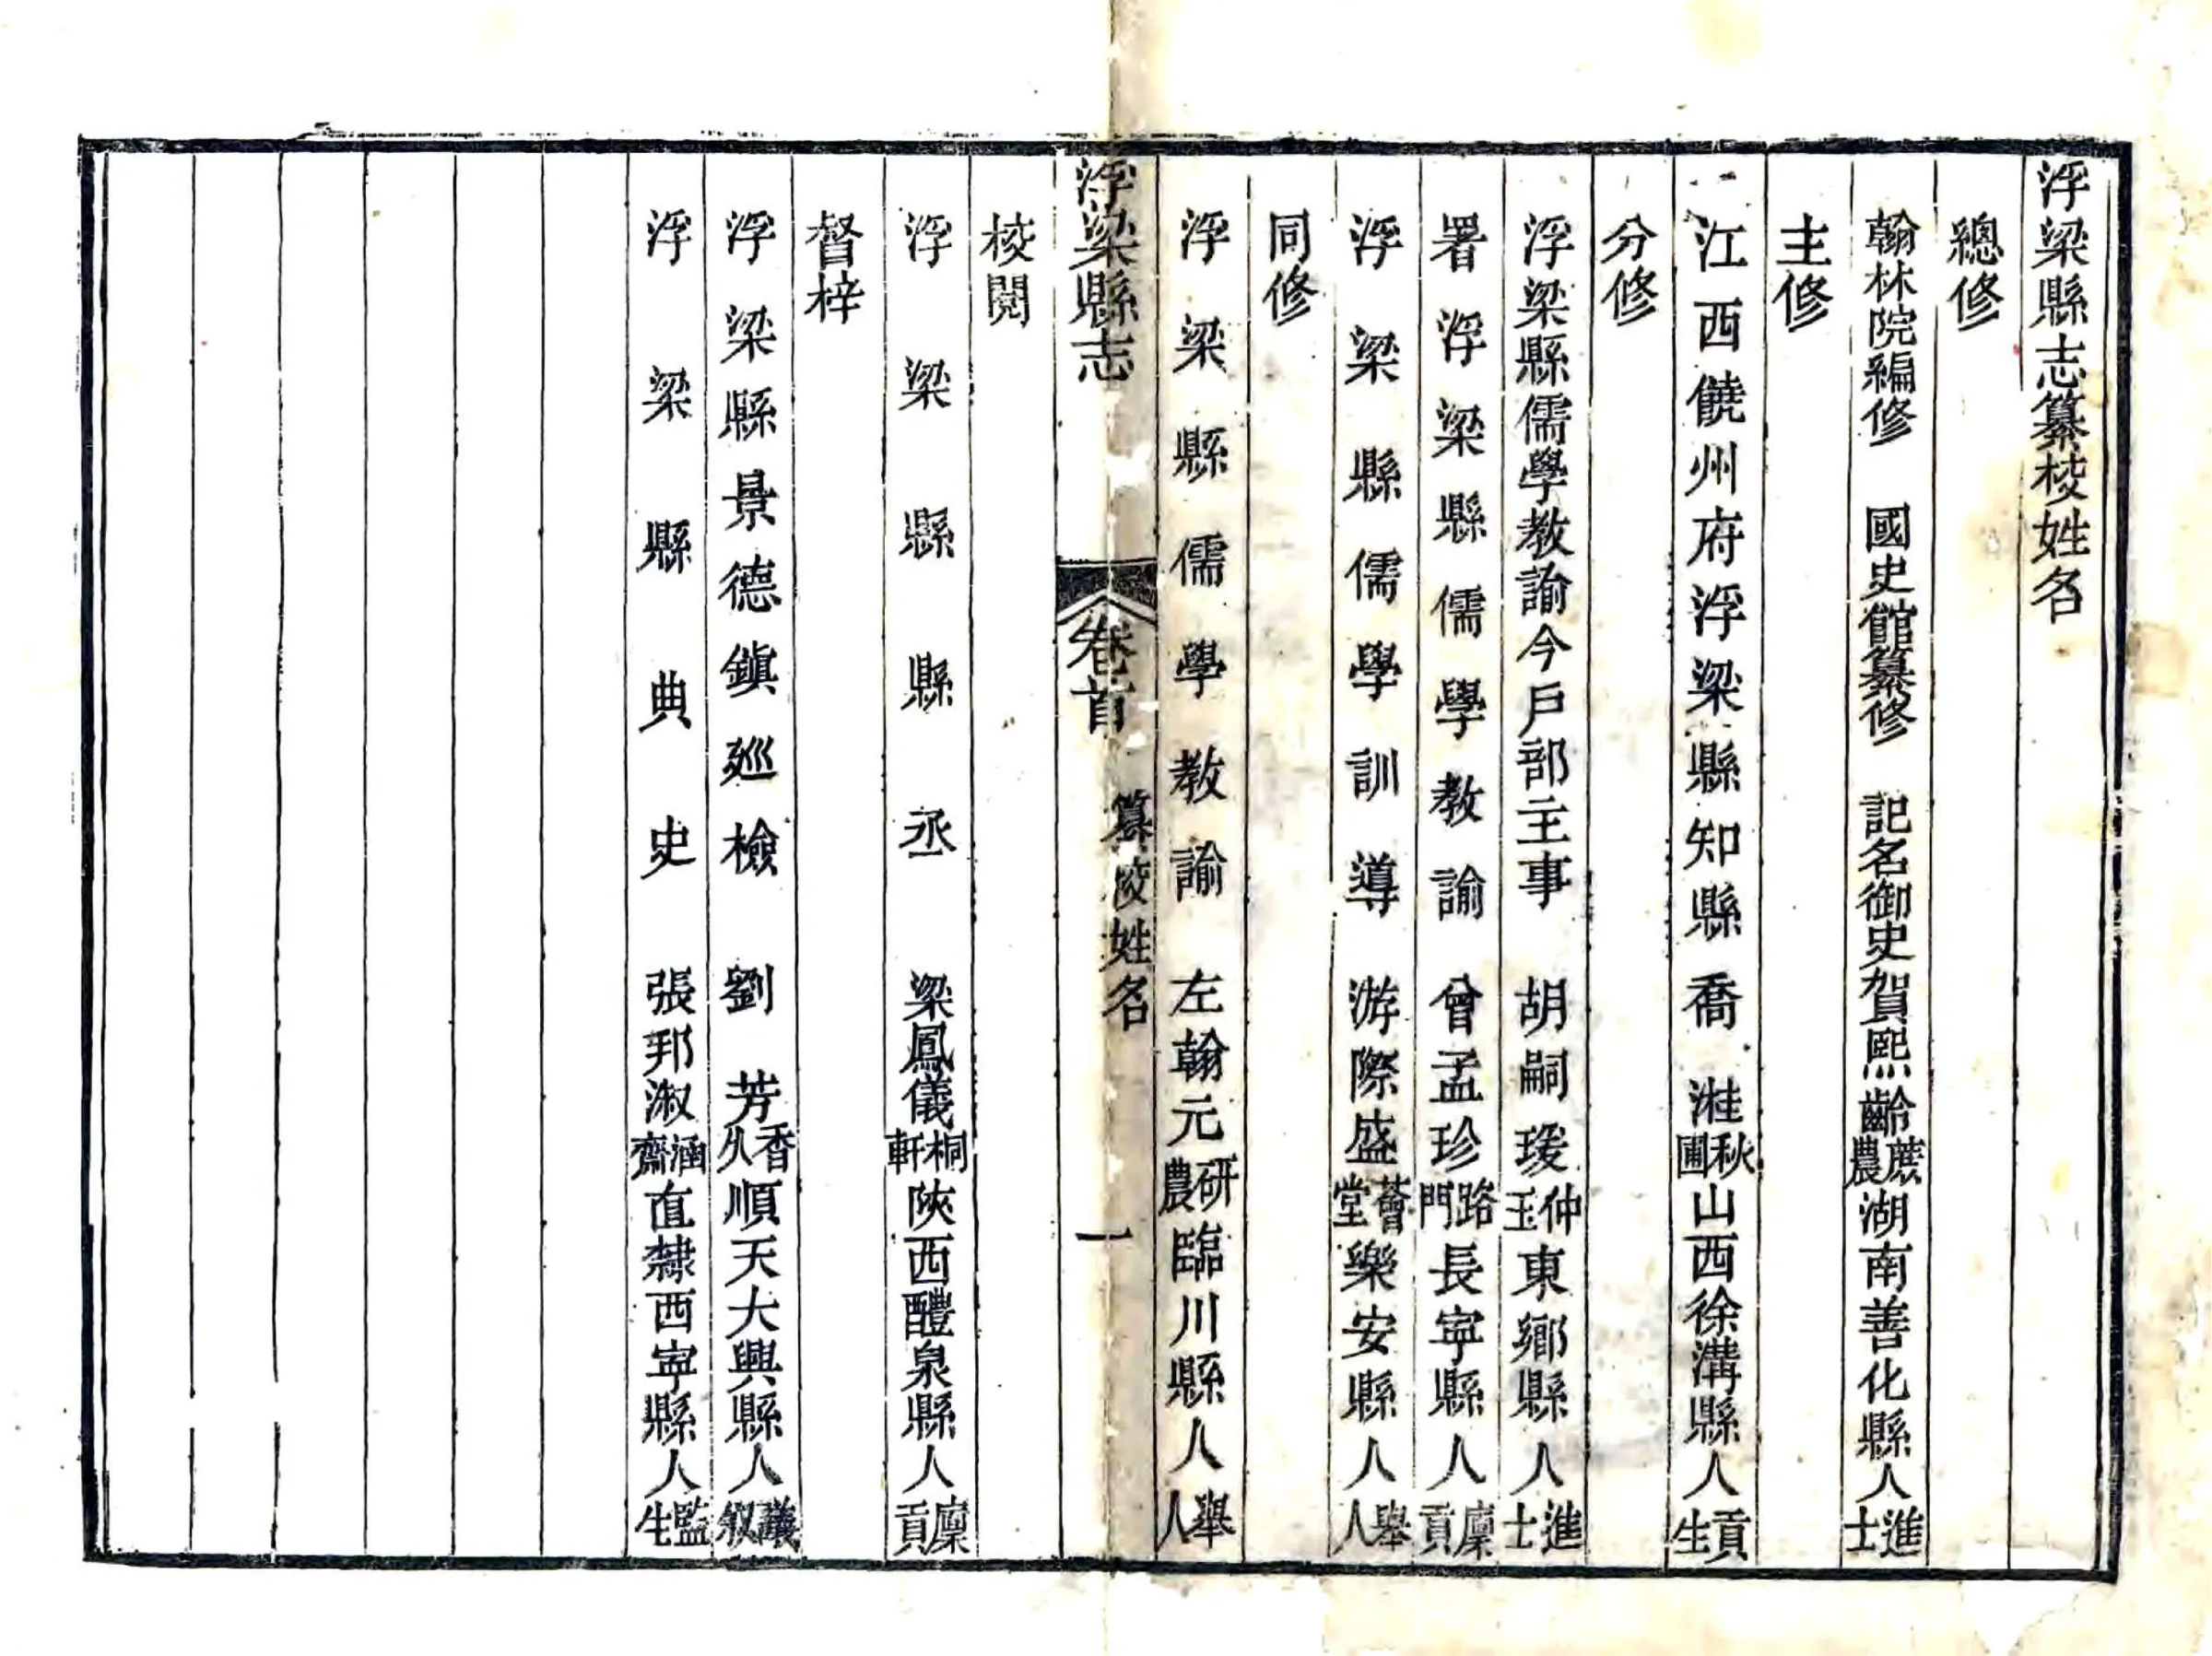 浮梁縣志纂校姓名
總修
翰林院編修　國史館纂修　記名御史賀熙齡蔗農湖南善化縣人進士
主修
江西饒州府浮梁縣知縣喬溎秋圃山西徐溝縣人貢生
分修
浮梁縣儒學教諭今戶部主事　胡嗣瑗仲玉東鄉縣人進士
署浮梁縣儒學教諭　曾孟珍路門長寧縣人廩貢
浮梁縣儒學訓導　游際盛薈堂樂安縣人舉人
同修
浮梁縣儒學教諭　左翰元研農臨川縣人舉人
浮梁縣志　卷首　纂校姓名　一
校閱
浮梁縣丞　梁鳳儀桐軒陝西醴泉縣人廩貢
督梓
浮梁縣景德鎮廵檢　劉芳香久順天大興縣人議敘
浮梁縣典史　張邦淑涵齋直隸西寧縣人監生